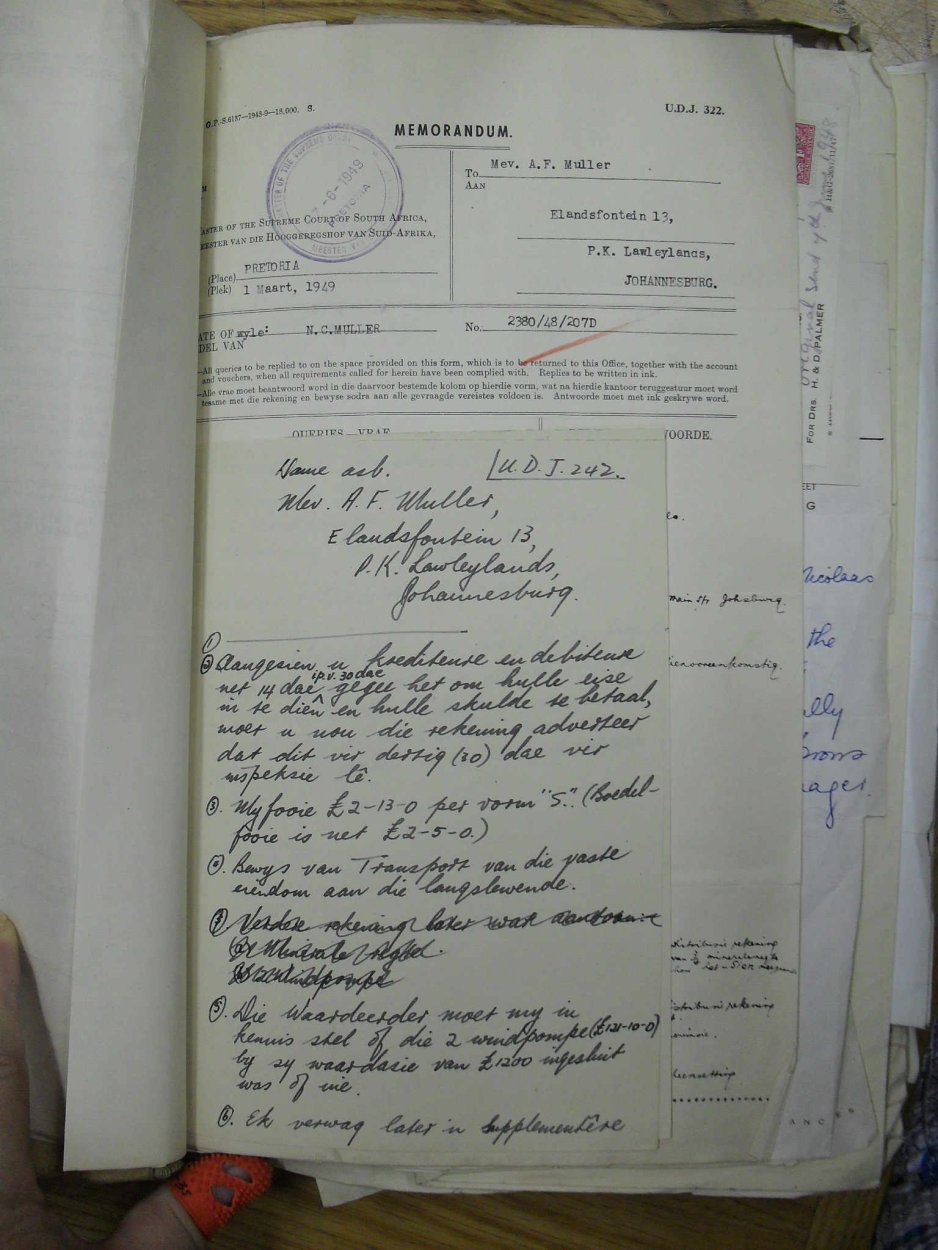 G.P.-S.6187—1948-9—18,000. S.
U.D.J. 322.
MEMORANDUM.
MASTER OF THE SUPREME COURT
-6-1949
PRETORIA
MEESTER VAN
ASTER OF THE SUPREME COURT OF SOUTH AFRICA,
EESTER VAN DIE HOOGGEREGSHOF VAN SUID-AFRIKA,
(Place) PRETORIA
(Plek) 1 Maart, 1949
To Mev. A.F. Muller
AAN
Elandsfontein 13,
P.K. Lawleylands,
JOHANNESBURG.
ATE OF wyle: N.C.MULLER
DEL VAN
No. 2380/48/207D
—All queries to be replied to on the space provided on this form, which is to be returned to this Office, together with the account
and vouchers, when all requirements called for herein have been complied with. Replies to be written in ink.
—Alle vrae moet beantwoord word in die daarvoor bestemde kolom op hierdie vorm, wat na hierdie kantoor teruggestuur moet word
tesame met die rekening en bewyse sodra aan alle gevraagde vereistes voldoen is. Antwoorde moet met ink geskrywe word.
QUERIES—VRAE
WOORDE.
Dame asb. U.D.J. 242.
Mev. A. F. Muller,
Elandsfontein 13,
P.K. Lawleylands,
Johannesburg.
①
② Aangesien u krediteure en debiteure
net 14 dae i.p.v. 30 dae gegee het om hulle eise
in te dien en hulle skulde te betaal,
moet u nou die rekening adverteer
dat dit vir dertig (30) dae vir
inspeksie lê.
③. My fooie £2-13-0 per vorm "S". (Boedel-
fooie is net £2-5-0.)
④. Bewys van Transport van die vaste
eiendom aan die langslewende.
Verdere rekening later
Minerale regte
windpompe
⑤. Die Waardeerder moet my in
kennis stel of die 2 windpompe (£121-10-0)
by sy waardasie van £1200 ingesluit
was of nie.
⑥. Ek verwag later 'n Supplementêre
main Str Johsburg.
distribusie rekening
distribusie rekening
FOR DRS. H. & D. PALMER
original send
EET
G
Nicolaas
the
ager.
ANCES